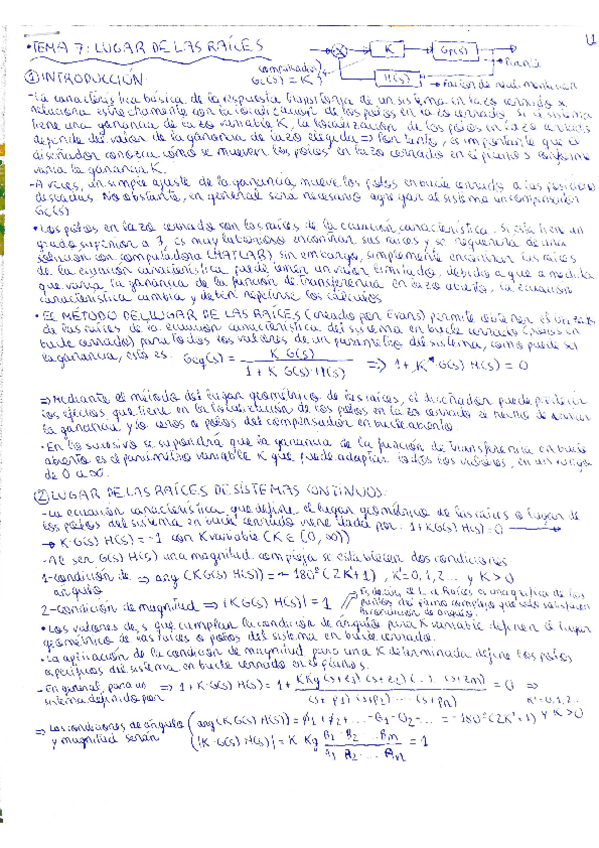 •TEMA 7: LUGAR DE LAS RAÍCES
K
Gp(s)
Planta
compensador
Gc(s) = K
H(s)
① INTRODUCCIÓN:
-La característica básica de la respuesta transitoria de un sistema en lazo cerrado se
relaciona estrechamente con la localización de los polos en lazo cerrado. Si el sistema
tiene una ganancia de lazo variable K, la localización de los polos en lazo cerrado
depende del valor de la ganancia de lazo elegida => Por tanto, es importante que el
diseñador conozca cómo se mueven los polos en lazo cerrado en el plano s conforme
varía la ganancia K.
-A veces, un simple ajuste de la ganancia, mueve los polos en bucle cerrado a las posiciones
deseadas. No obstante, en general será necesario agregar al sistema un compensador
Gc(s)
• Los polos en lazo cerrado son las raíces de la ecuación característica. Si ésta tiene un
grado superior a 3, es muy laborioso encontrar sus raíces y se requerirá de una
solución con computadora (MATLAB), sin embargo, simplemente encontrar las raíces
de la ecuación característica puede tener un valor limitado, debido a que a medida
que varía la ganancia de la función de transferencia en lazo abierto, la ecuación
característica cambia y deben repetirse los cálculos
• EL MÉTODO DEL LUGAR DE LAS RAÍCES (creado por Evans) permite obtener el
de las raíces de la ecuación característica del sistema en bucle cerrado (polos en
bucle cerrado) para todos los valores de un parámetro del sistema, como puede ser
la ganancia, esto es: Geq(s) = K G(s) / 1 + K G(s)·H(s) => 1 + K·G(s) H(s) = 0
=> Mediante el método del lugar geométrico de las raíces, el diseñador puede predecir
los efectos que tiene en la localización de los polos en lazo cerrado el hecho de variar
la ganancia y/o ceros o polos del compensador en bucle abierto
• En lo sucesivo se supondrá que la ganancia de la función de transferencia en bucle
abierto es el parámetro variable K que puede adaptar todos los valores, en un rango
de 0 a ∞.
② LUGAR DE LAS RAÍCES DE SISTEMAS CONTINUOS:
-La ecuación característica que define el lugar geométrico de las raíces o lugar de
los polos del sistema en bucle cerrado viene dada por: 1+KG(s) H(s) = 0
→ K·G(s) H(s) = -1 con K variable (K ∈ [0, ∞))
-Al ser G(s) H(s) una magnitud compleja se establecen dos condiciones
1-condición de ángulo => arg (KG(s) H(s)) = - 180º (2K'+1) , K' = 0, 1, 2... y K > 0
2-condición de magnitud => |KG(s) H(s)| = 1
Es decir, el L. d Raíces es una gráfica de los
puntos del plano complejo que sólo satisfacen
la condición de ángulo.
• Los valores de s que cumplan la condición de ángulo para K variable definen el lugar
geométrico de las raíces o polos del sistema en bucle cerrado.
• La aplicación de la condición de magnitud para una K determinada define los polos
específicos del sistema en bucle cerrado en el plano s.
-En general, para un sistema definido por => 1 + K·G(s) H(s) = 1 + K Kg (s+z1) (s+z2) (...) (s+zm) / (s+p1) (s+p2) ... (s+pn) = 0 =>
K' = 0, 1, 2..
y K > 0
=> Las condiciones de ángulo y magnitud serán
arg(K·G(s) H(s)) = Ø1 + Ø2 + ... - θ1 - θ2 - ... = -180º (2K'+1)
|K·G(s) H(s)| = K Kg B1·B2·...Bm / A1·A2·...An = 1